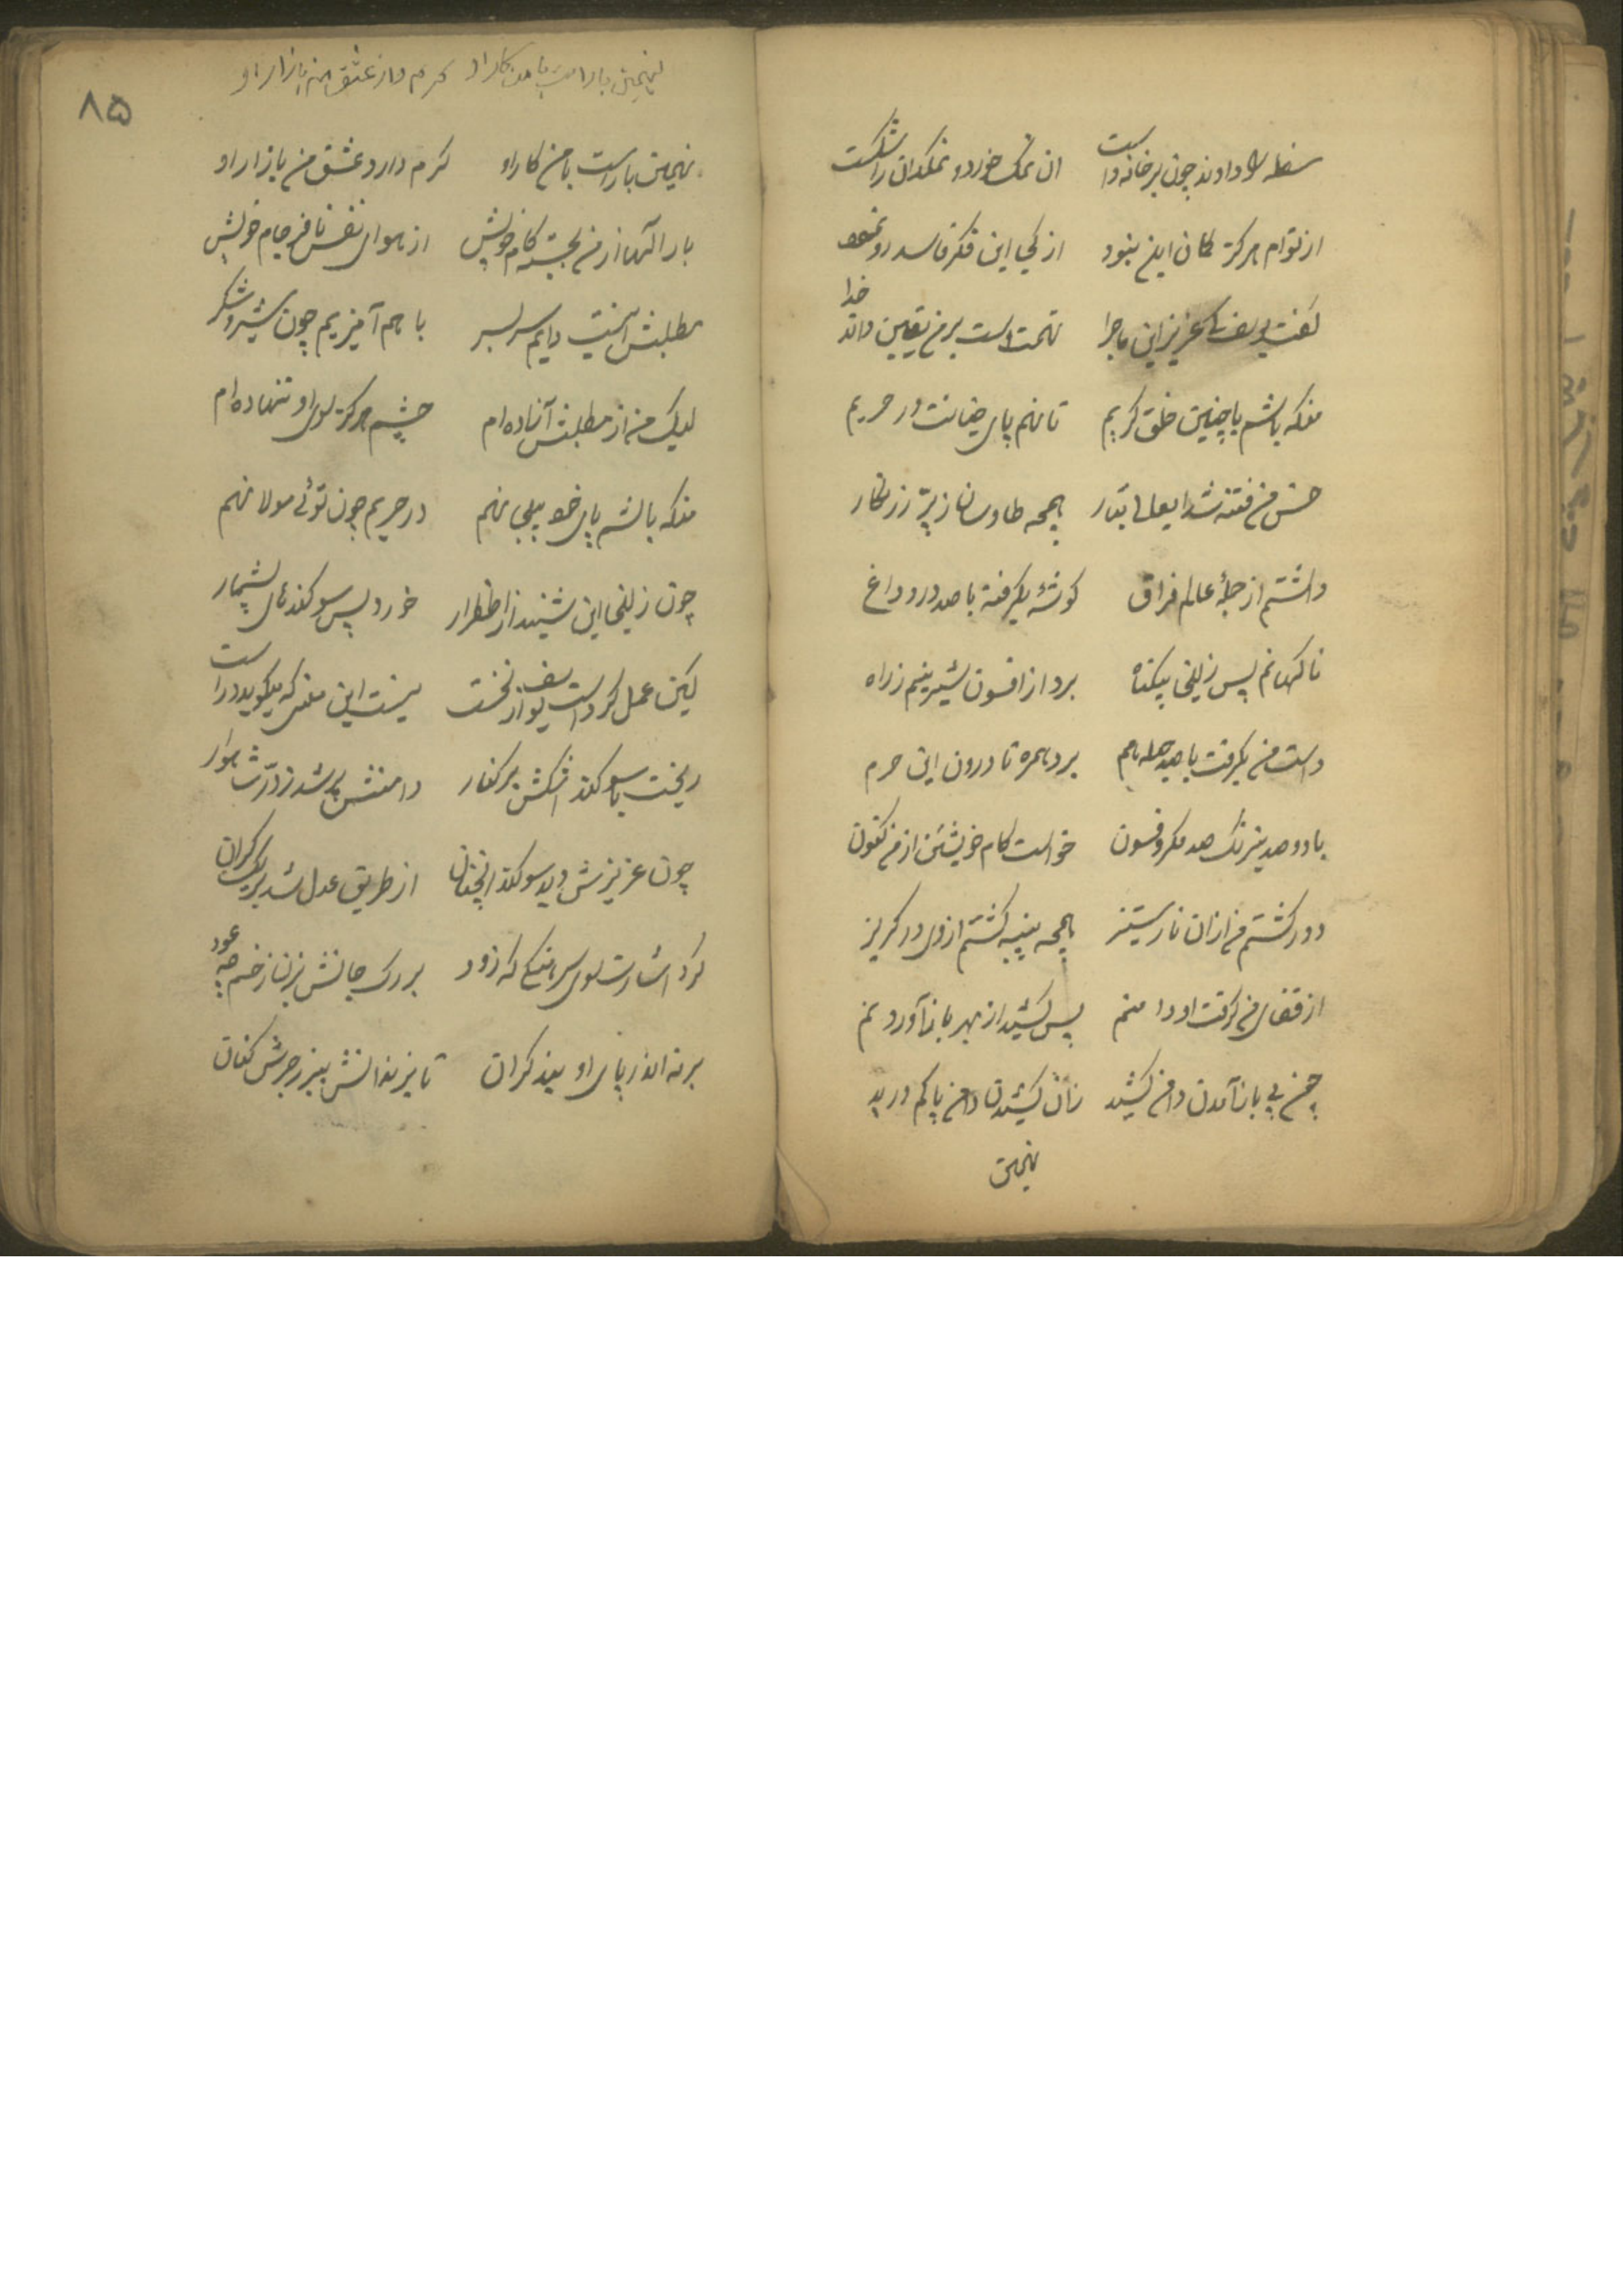 سفله را دادند چون بر خانه دست ان نمک خورد و نمکدان را شکست
از توام هرگز گمان این نبود از کجا این فکر فاسد رو نمود
گفت یوسف کی عزیز این ماجرا تهمت است بر من یقین داند خدا
منکه باشم با چنین خلق کریم تا نهم پای خیانت در حریم
حسن من فتنه شد همچه طاوسان ز پر زرنگار
داشتم از جمله عالم فراق گوشه بگرفته با صد درد و داغ
ناگهانم پس زلیخا بیگناه برد از افسون شیرینم ز راه
دست من بگرفت با صد برد همره تا درون این حرم
با دو صد نیرنگ صد مکر و فسون خواست کام خویشتن از من کنون
دور گشتم من ازان نار ستیز همچه پنبه گشتم از وی در گریز
از قفای من گرفت او دامنم پس کشید از بهر باز آوردنم
من پی باز آمدن دامن کشید زان کشیدن دامن پاکم درید
نهمین
۸۵
نهمین بار است با من کار او کرم دارد عشق من بازار او
نهمین بار است با من کار او کرم دارد عشق من بازار او
بارالها از من بجسته کام خویش از هوای نفس نافرجام خویش
مطلبش اینست دایم سر بسر با هم آمیزیم چون شیر و شکر
لیک من از مطلبش آزاده ام چشم هرگز سوی او ننهاده ام
منکه باشم پای خود بیجا نهم در حریم چون توئی مولا نهم
چون زلیخا این شنید از اضطرار خورد پس سوگندهای بیشمار
لیکن عمل کرده است یوسف از نخست نیست این معنی که میگوید درست
ریخت با سوگند اشکش بر کنار دامنش پر شد ز در شاهوار
چون عزیزش دید سوگند آنچنان از طریق عدل شد بر یک کران
کرد اشارت سوی سرهنگی که زود بر رک جانش بزن زخمه چه عود
برنه اندر پای او بند گران تا بزندانش ببر زجرش کنان